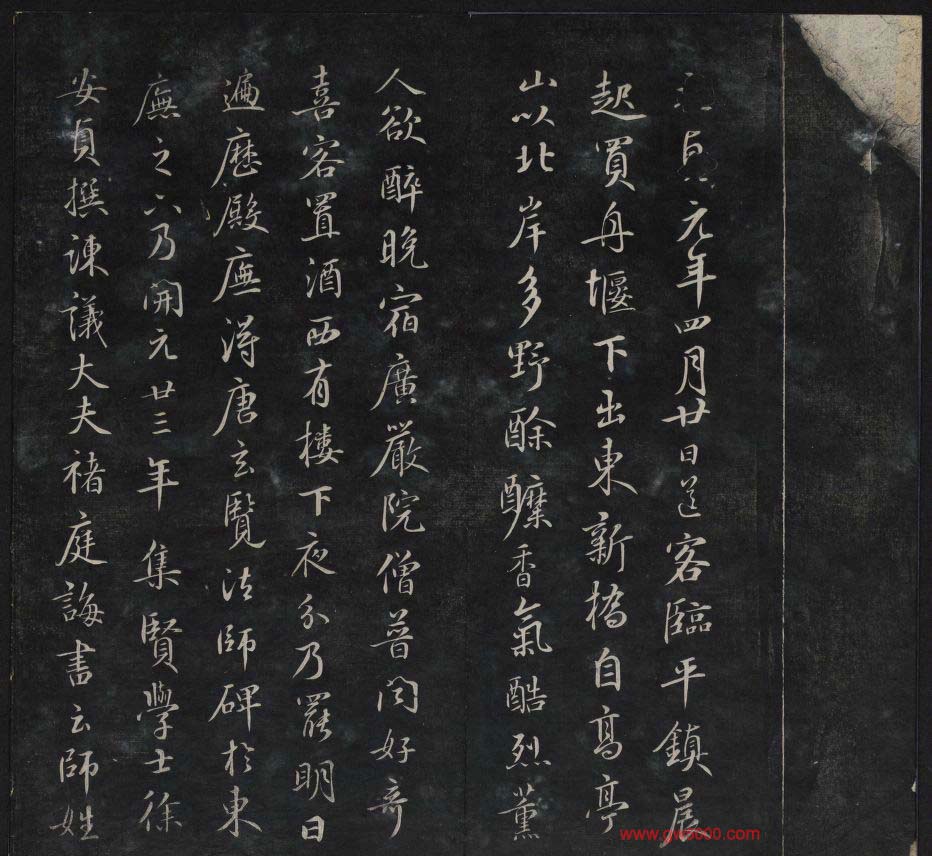 元年四月廿日送客臨平鎮晨
起買舟堰下出東新橋自高亭
山以北岸多野酴醾香氣酷烈薰
人欲醉晚宿廣嚴院僧普闻好奇
喜客置酒西有樓下夜分乃罷明日
遍歷殿廡得唐玄覽法師碑於東
廡之六乃開元廿三年 集賢學士徐
安貞撰諫議大夫褚庭誨書云師姓
www.gwz000.com